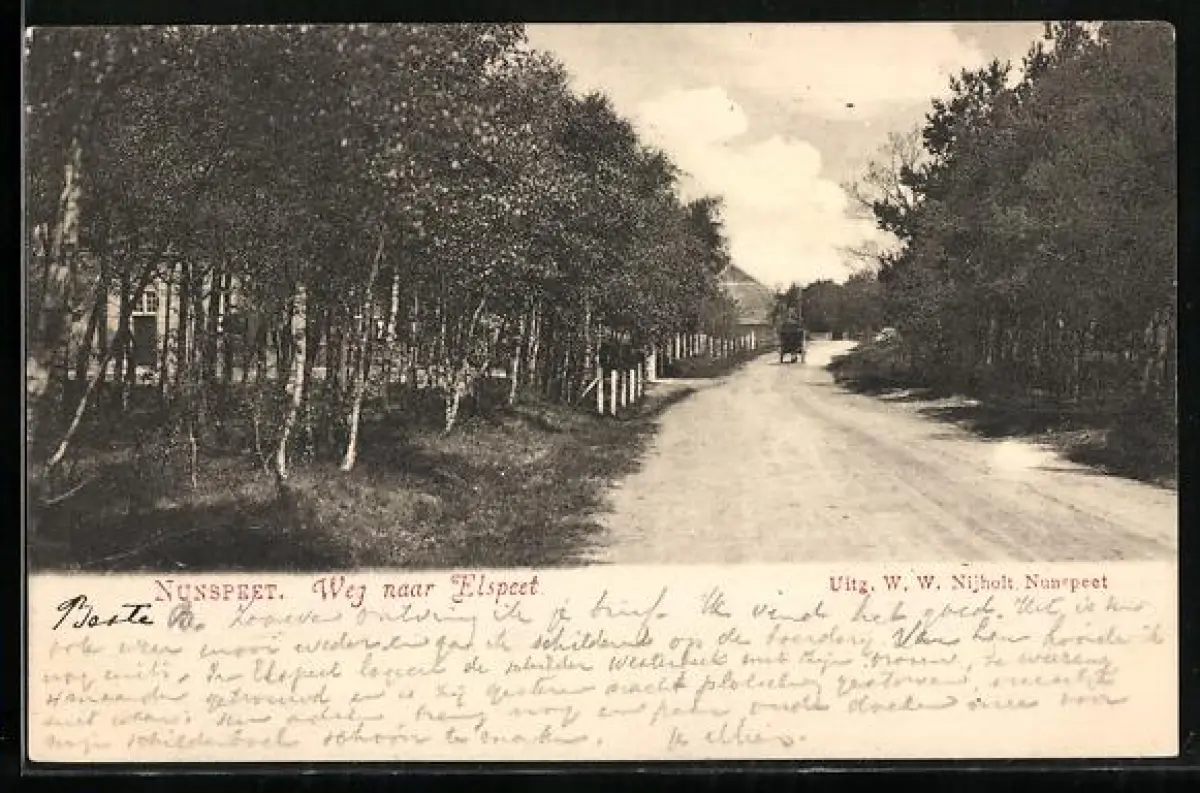 NUNSPEET. Weg naar Elspeet.
Uitg. W. W. Nijholt, Nunspeet
Beste B. Zooeven ontving ik je brief. Ik vind het goed. Het is hier
ook weer mooi weder en ga ik schilderen op de boerderij. Van hen hoorde ik
nog niets. In Elspeet logeert de schilder Westerbeek met zijn vrouw, ze waren
4 maanden getrouwd en is zij gisteren nacht plotseling gestorven,
niet waar. breng nog een paar oude doeken mee voor
mijn schilderboel schoon te maken.